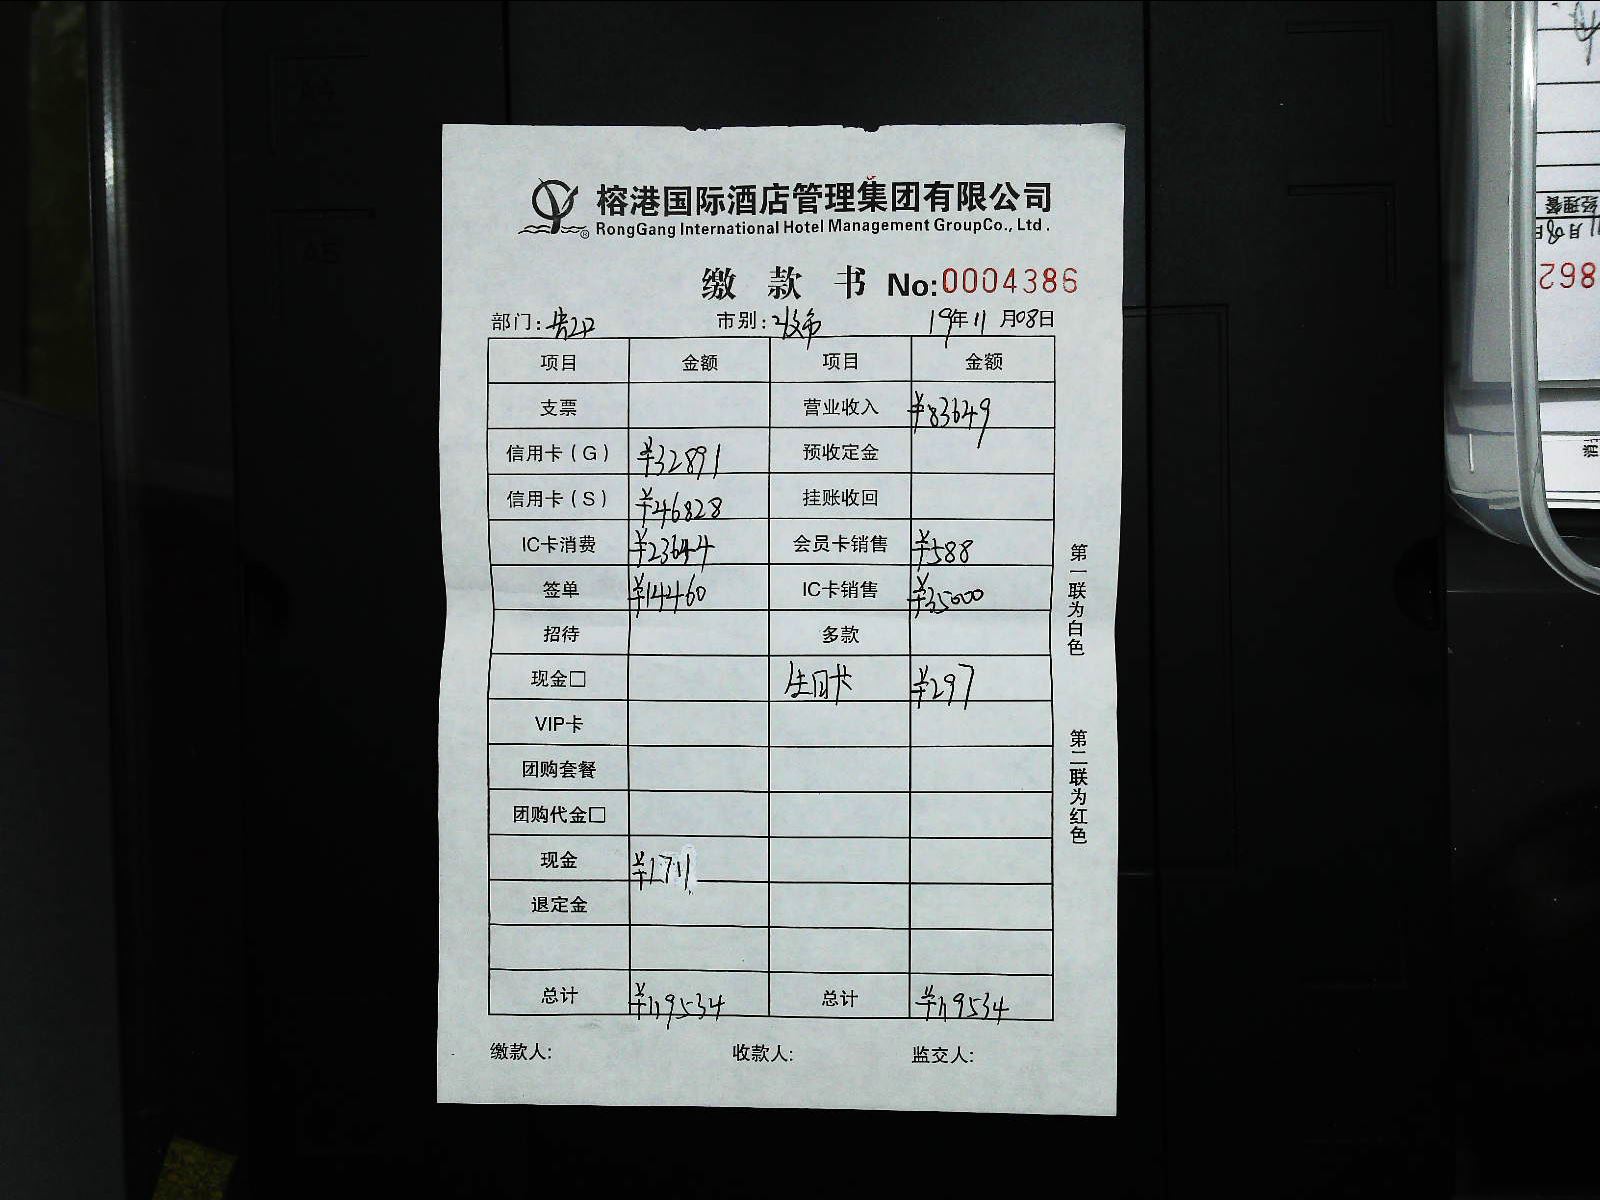 榕港国际酒店管理集团有限公司
RongGang International Hotel Management GroupCo., Ltd .
缴 款 书 No:0004386
部门: 市别: 19年11月08日
项目 金额 项目 金额
支票 营业收入 ¥83649
信用卡(G) ¥32891 预收定金
信用卡(S) ¥46828 挂账收回
IC卡消费 ¥23644 会员卡销售 ¥588
签单 ¥14460 IC卡销售 ¥35000
招待 多款
现金□ 生日卡 ¥297
VIP卡
团购套餐
团购代金□
现金 ¥1711
退定金
总计 ¥119534 总计 ¥119534
缴款人: 收款人: 监交人:
第一联为白色
第二联为红色
A4
A5
862